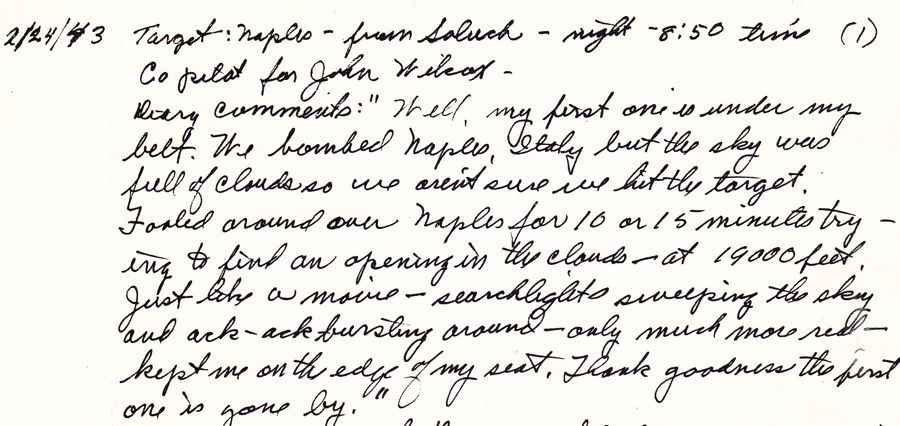 2/24/43 Target: Naples - from Soluch - night - 8:50 time (1)
Co pilot for John Wilcox -
Diary comments: " Well, my first one is under my
belt. We bombed Naples, Italy but the sky was
full of clouds so we aren't sure we hit the target.
Fooled around over Naples for 10 or 15 minutes try-
ing to find an opening in the clouds - at 19000 feet.
Just like a movie - searchlights sweeping the sky
and ack-ack bursting around - only much more real -
kept me on the edge of my seat. Thank goodness the first
one is gone by. "